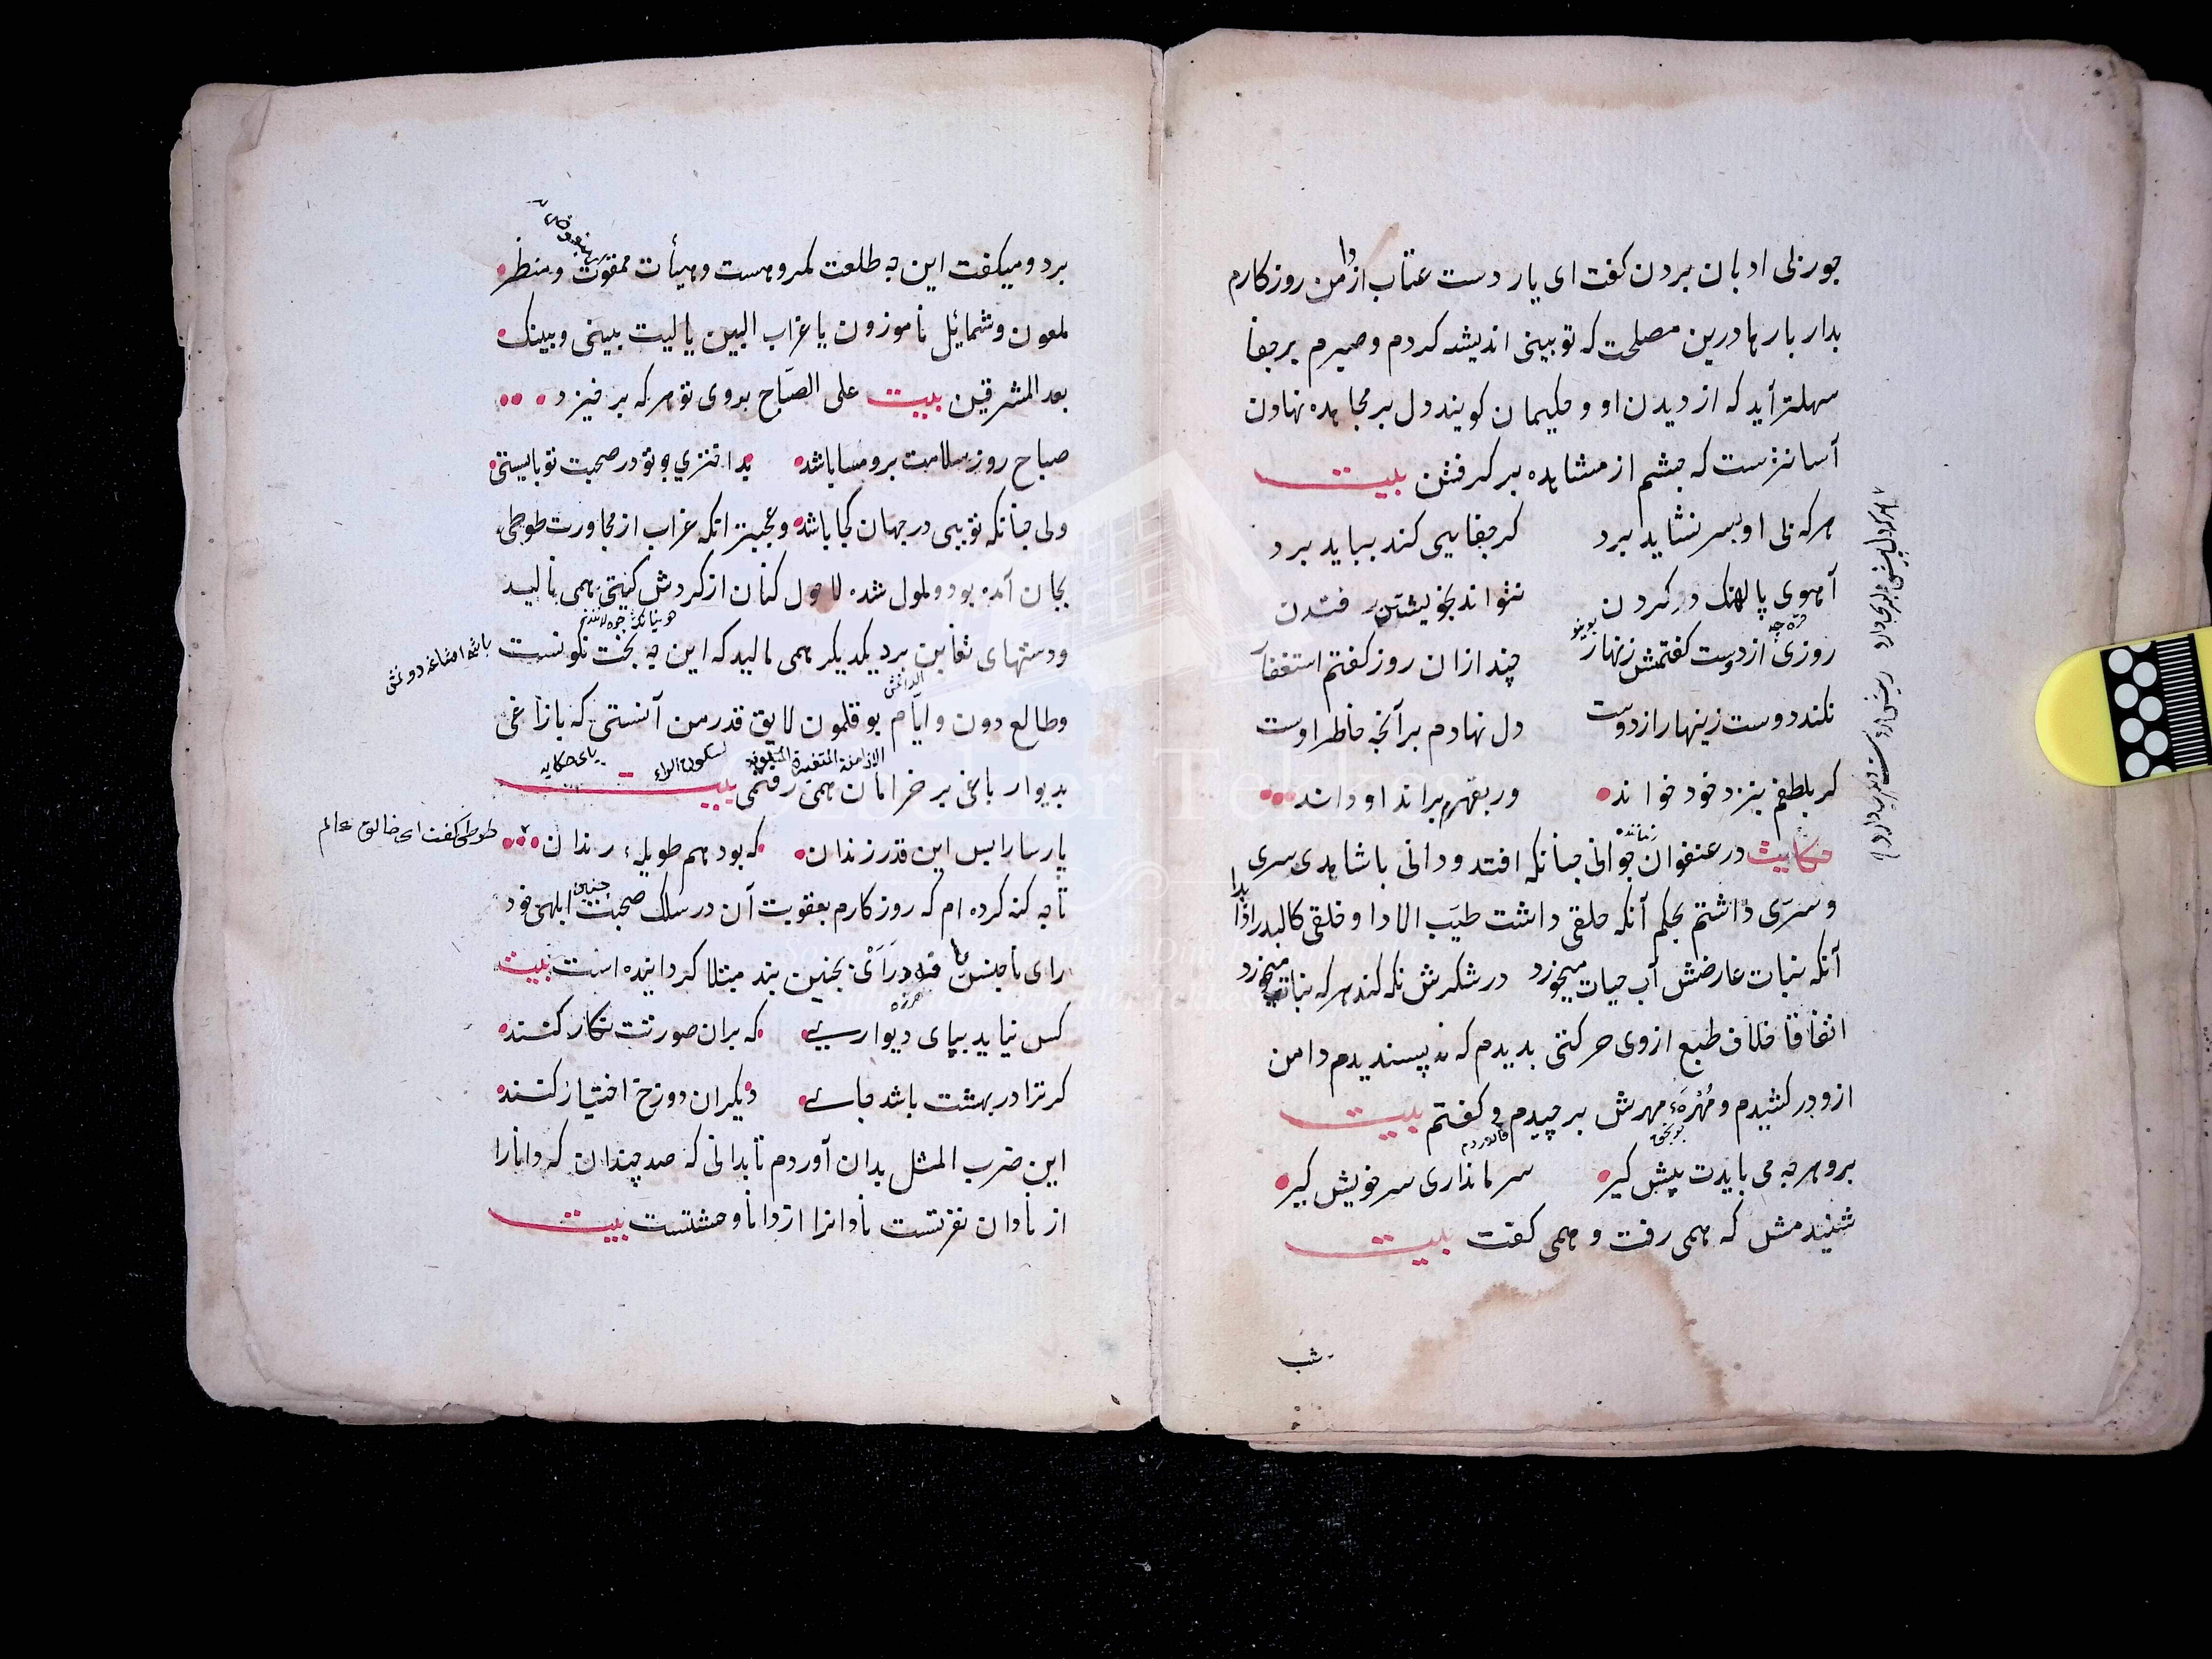 جور بی ادبان بردن گفت ای یار دست عتاب از دامن روزکارم
بدار بارها درین مصلحت که تو بینی اندیشه کردم و صبرم بر جفا
سهلتر آید که از دیدن او و حکیمان کویند دل بر مجاهده نهادن
آسانترست که چشم از مشاهده بر کرفتن بیت
هرکه بی او بسر نشاید برد کر جفایی کند بباید برد
آهوی پالهنک در کردن نتواند بخویشتن رفتن
روزی از دوست کفتمش زنهار چند ازان روز کفتم استغفار
نکند دوست زینهار از دوست دل نهادم بر آنچه خاطر اوست
کر بلطفم بنزد خود خواند ور بقهرم براند او داند
حکایت در عنفوان جوانی چنانکه افتد و دانی با شاهدی سری
و سرّی داشتم بحکم آنکه حلقی داشت طیب الادا و خلقی کالبدر اذا بدا
آنکه نبات عارضش آب حیات میخورد در شکرش نکه کند هرکه نبات میخورد
اتفاقا خلاف طبع ازوی حرکتی بدیدم که نه پسندیدم دامن
ازو در کشیدم و مُهرَهٔ مهرش بر چیدم و کفتم بیت
برو هرچه می بایدت پیش کیر سر ما نداری سر خویش کیر
شنیدمش که همی رفت و همی کفت بیت
شب
برد و میکفت این چه طلعت مکروهست و هیأت ممقوت و منظر
ملعون و شمائل ناموزون یا غراب البین یا لیت بینی و بینک
بعد المشرقین بیت علی الصّباح بروی تو هرکه بر خیزد
صباح روز سلامت برو مسا باشد بد اختری چو تو در صحبت تو بایستی
ولی چنانکه تویی در جهان کجا باشد و عجبتر آنکه غراب از مجاورت طوطی
بجان آمده بود و ملول شده لاحول کنان از کردش کیتی همی نالید
و دستهای تغابن بر یکدیکر همی مالید که این چه بخت نکونست
وطالع دون و ایام بوقلمون لایق قدر من آنستی که با زاغی
بدیوار باغی بر خرامان همی رفتمی بیت
الازمنة المتغیرة المتلونه
بسکون الراء
یای حکایه
پارسا را بس این قدر زندان که بود هم طویلهٔ رندان
طوطی کفت ای خالق عالم
تا چه کنه کرده ام که روزکارم بعقوبت آن در سلک صحبت چنین ابلهی خود
رای ناجنس خیره درای بچنین بند مبتلا کردانیده است بیت
هرزه
کس نیاید بپای دیواری که بران صورتت نکار کنند
کر ترا در بهشت باشد جای دیکران دوزخ اختیار کنند
این ضرب المثل بدان آوردم تا بدانی که صد چندان که دانا را
از نادان نفرتست نادانرا از دانا وحشتست بیت